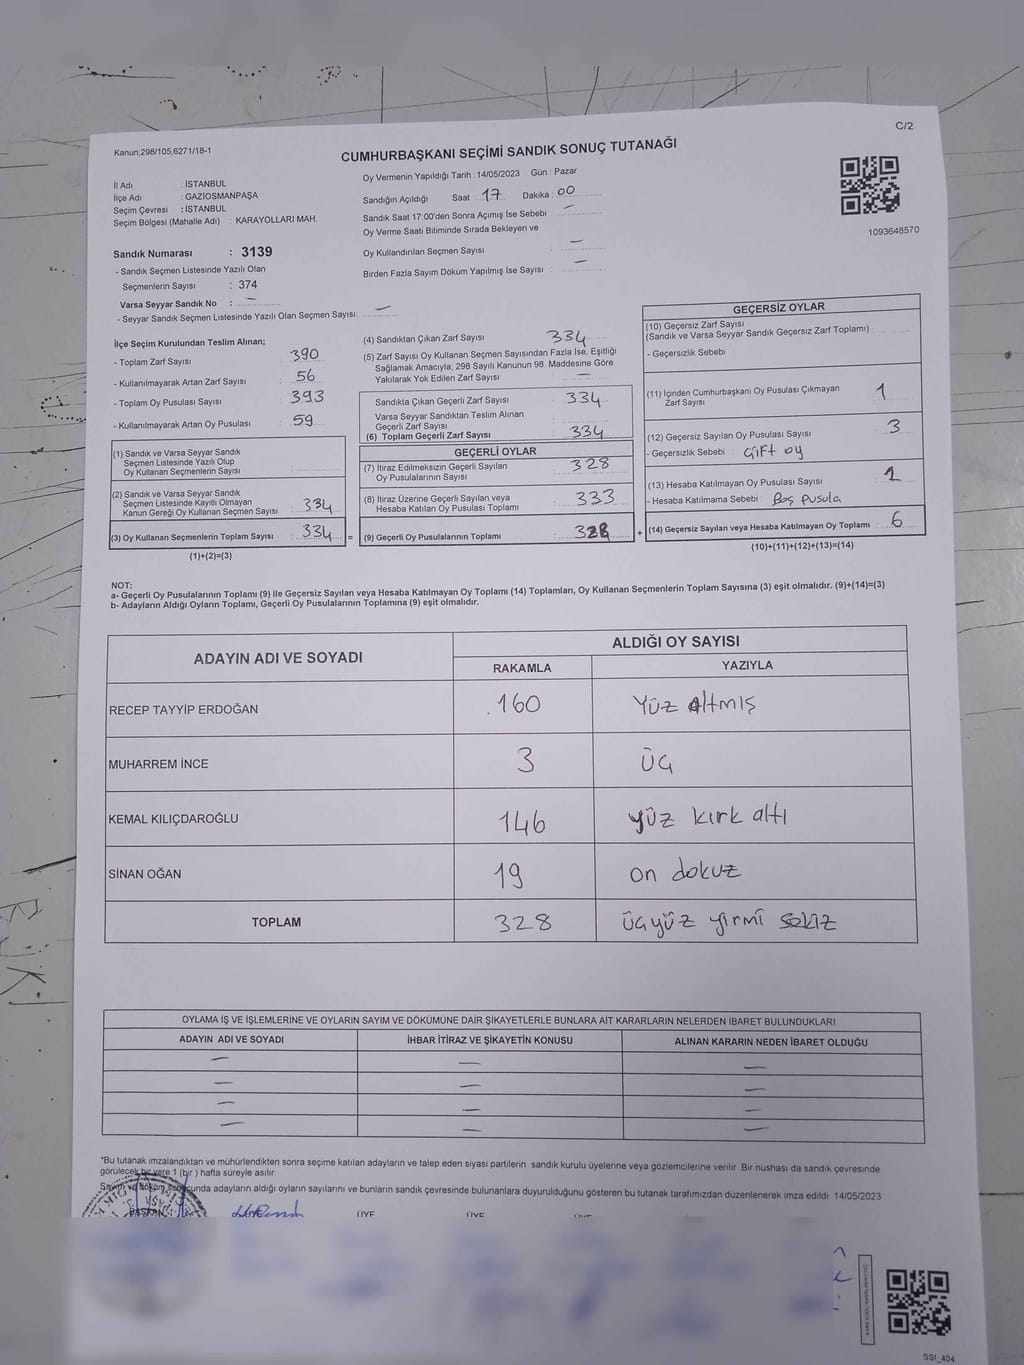 C/2
Kanun;298/105;6271/18-1
CUMHURBAŞKANI SEÇİMİ SANDIK SONUÇ TUTANAĞI
İl Adı : İSTANBUL
İlçe Adı : GAZİOSMANPAŞA
Seçim Çevresi : İSTANBUL
Seçim Bölgesi (Mahalle Adı) : KARAYOLLARI MAH.
Sandık Numarası : 3139
- Sandık Seçmen Listesinde Yazılı Olan
Seçmenlerin Sayısı : 374
Varsa Seyyar Sandık No : —
- Seyyar Sandık Seçmen Listesinde Yazılı Olan Seçmen Sayısı: —
Oy Vermenin Yapıldığı Tarih : 14/05/2023 Gün : Pazar
Sandığın Açıldığı Saat : 17 Dakika : 00
Sandık Saat 17:00'den Sonra Açımış İse Sebebi : —
Oy Verme Saati Bitiminde Sırada Bekleyen ve
Oy Kullandırılan Seçmen Sayısı : —
Birden Fazla Sayım Döküm Yapılmış İse Sayısı : —
1093648570
İlçe Seçim Kurulundan Teslim Alınan;
- Toplam Zarf Sayısı : 390
- Kullanılmayarak Artan Zarf Sayısı : 56
- Toplam Oy Pusulası Sayısı : 393
- Kullanılmayarak Artan Oy Pusulası : 59
(1) Sandık ve Varsa Seyyar Sandık
Seçmen Listesinde Yazılı Olup
Oy Kullanan Seçmenlerin Sayısı :
(2) Sandık ve Varsa Seyyar Sandık
Seçmen Listesinde Kayıtlı Olmayan
Kanun Gereği Oy Kullanan Seçmen Sayısı : 334
(3) Oy Kullanan Seçmenlerin Toplam Sayısı : 334 =
(1)+(2)=(3)
(4) Sandıktan Çıkan Zarf Sayısı : 334
(5) Zarf Sayısı Oy Kullanan Seçmen Sayısından Fazla İse, Eşitliği
Sağlamak Amacıyla, 298 Sayılı Kanunun 98. Maddesine Göre
Yakılarak Yok Edilen Zarf Sayısı : —
Sandıkta Çıkan Geçerli Zarf Sayısı : 334
Varsa Seyyar Sandıktan Teslim Alınan
Geçerli Zarf Sayısı :
(6) Toplam Geçerli Zarf Sayısı : 334
GEÇERLİ OYLAR
(7) İtiraz Edilmeksizin Geçerli Sayılan
Oy Pusulalarının Sayısı : 328
(8) İtiraz Üzerine Geçerli Sayılan veya
Hesaba Katılan Oy Pusulası Toplamı : 333
(9) Geçerli Oy Pusulalarının Toplamı : 328 +
GEÇERSİZ OYLAR
(10) Geçersiz Zarf Sayısı
(Sandık ve Varsa Seyyar Sandık Geçersiz Zarf Toplamı) :
- Geçersizlik Sebebi :
(11) İçinden Cumhurbaşkanı Oy Pusulası Çıkmayan
Zarf Sayısı : 1
(12) Geçersiz Sayılan Oy Pusulası Sayısı : 3
- Geçersizlik Sebebi : Çift oy
(13) Hesaba Katılmayan Oy Pusulası Sayısı : 1
- Hesaba Katılmama Sebebi : Boş pusula
(14) Geçersiz Sayılan veya Hesaba Katılmayan Oy Toplamı : 6
(10)+(11)+(12)+(13)=(14)
NOT:
a- Geçerli Oy Pusulalarının Toplamı (9) ile Geçersiz Sayılan veya Hesaba Katılmayan Oy Toplamı (14) Toplamları, Oy Kullanan Seçmenlerin Toplam Sayısına (3) eşit olmalıdır. (9)+(14)=(3)
b- Adayların Aldığı Oyların Toplamı, Geçerli Oy Pusulalarının Toplamına (9) eşit olmalıdır.
ADAYIN ADI VE SOYADI
ALDIĞI OY SAYISI
RAKAMLA YAZIYLA
RECEP TAYYİP ERDOĞAN 160 Yüz Altmış
MUHARREM İNCE 3 üç
KEMAL KILIÇDAROĞLU 146 yüz kırk altı
SİNAN OĞAN 19 on dokuz
TOPLAM 328 üçyüz yirmi sekiz
OYLAMA İŞ VE İŞLEMLERİNE VE OYLARIN SAYIM VE DÖKÜMÜNE DAİR ŞİKAYETLERLE BUNLARA AİT KARARLARIN NELERDEN İBARET BULUNDUKLARI
ADAYIN ADI VE SOYADI İHBAR İTİRAZ VE ŞİKAYETİN KONUSU ALINAN KARARIN NEDEN İBARET OLDUĞU
— — —
— — —
— — —
— — —
*Bu tutanak imzalandıktan ve mühürlendikten sonra seçime katılan adayların ve talep eden siyasi partilerin sandık kurulu üyelerine veya gözlemcilerine verilir. Bir nüshası da sandık çevresinde
görülecek bir yere 1 (bir) hafta süreyle asılır.
Sayım ve döküm sonucunda adayların aldığı oyların sayılarını ve bunların sandık çevresinde bulunanlara duyurulduğunu gösteren bu tutanak tarafımızdan düzenlenerek imza edildi. 14/05/2023
BAŞKAN ÜYE ÜYE
SSI_404